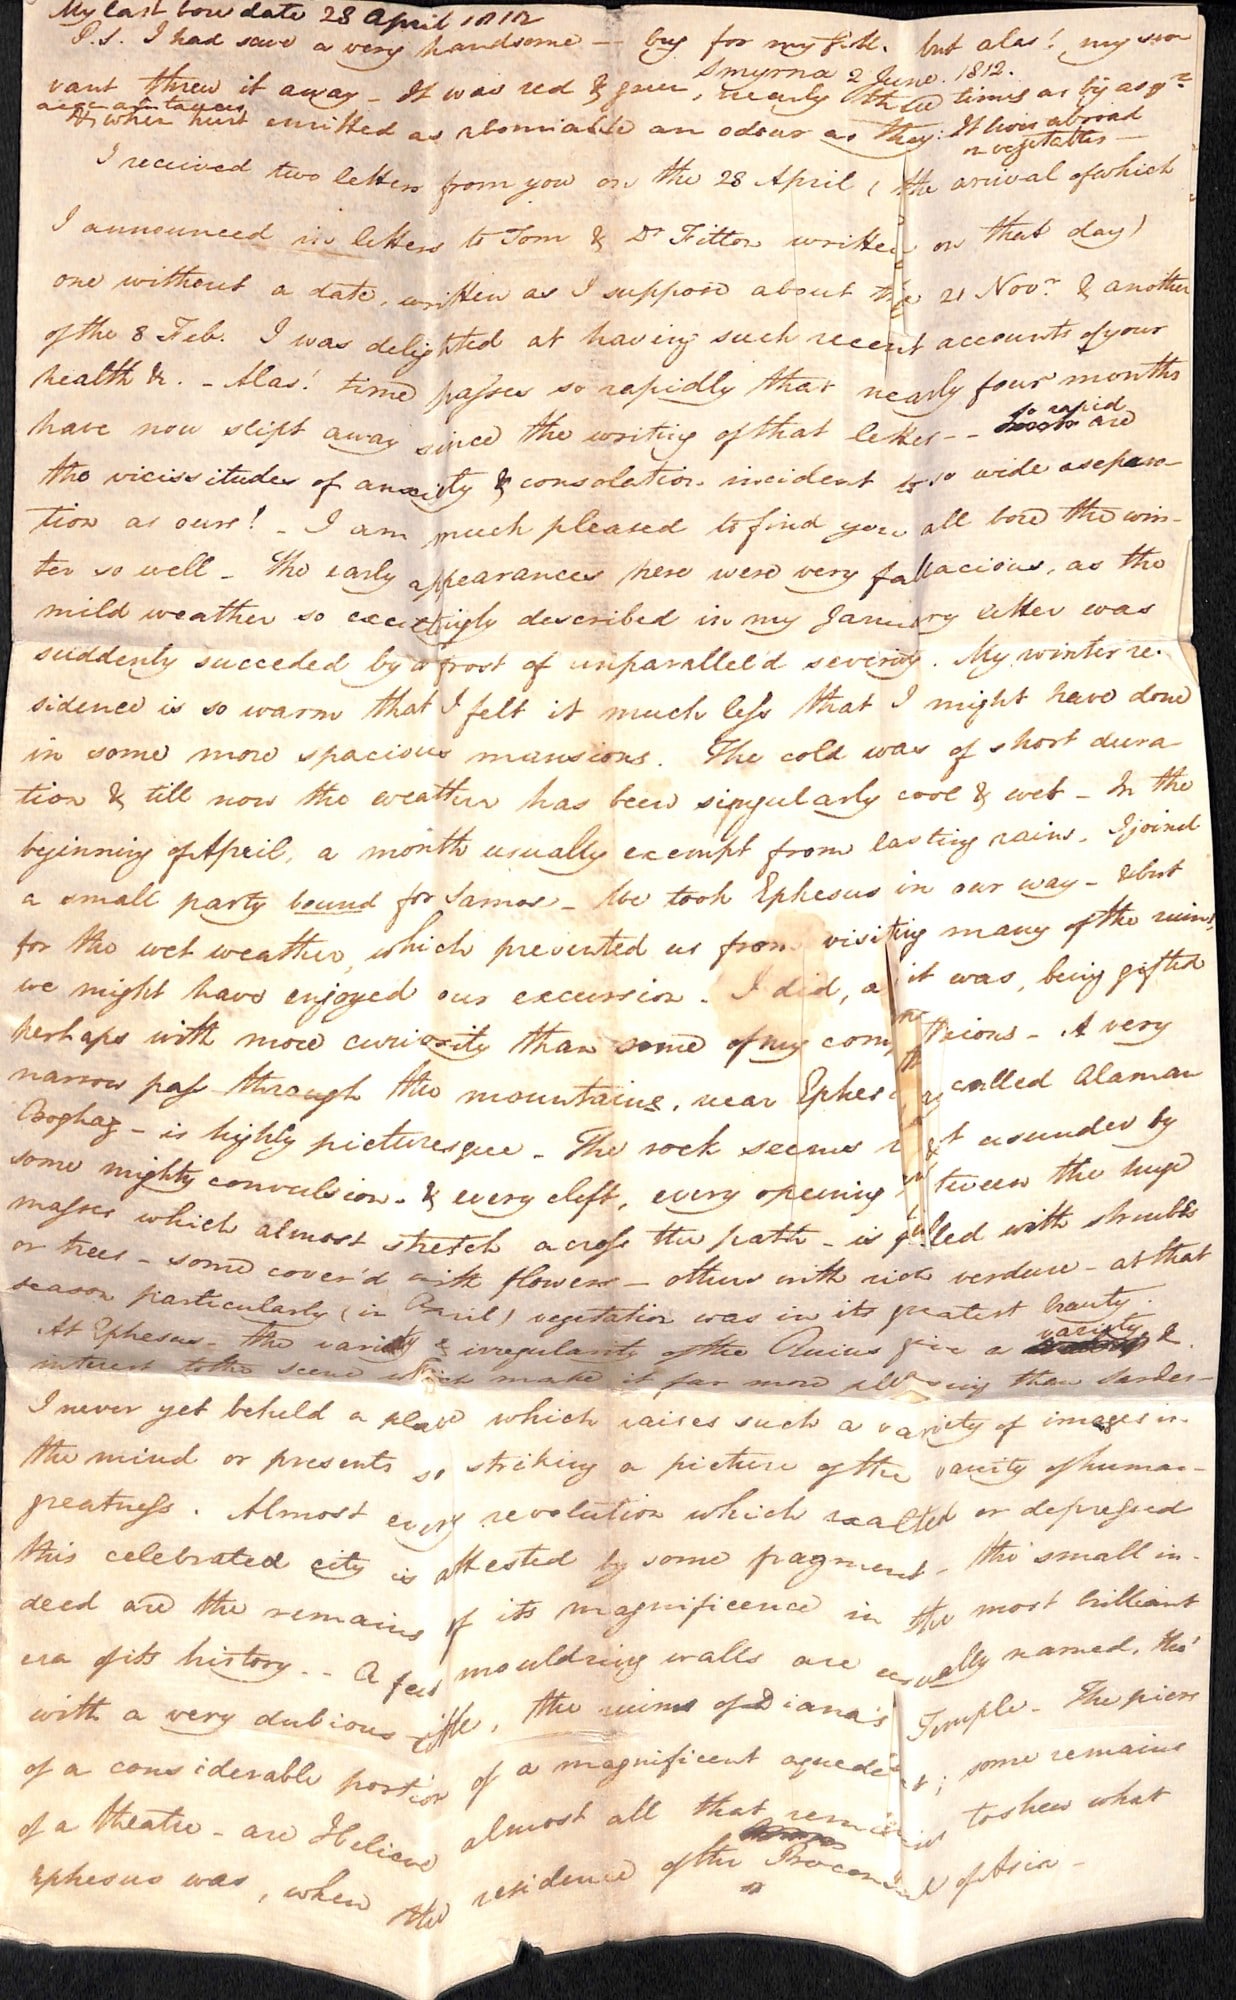 My last bore date 28 April 1812
P.S. I had save a very handsome — bug for my but alas! my ser
Smyrna 2 June. 1812.
vant threw it away – It was red & green, nearly three times as big as
& when hurt emitted as abomiable an odour as they: It lives abroad
on vegetables —
I received two letters from you on the 28 April, (the arival of which
I announced in letters to Tom & Dr Fitton written on that day)
one without a date, written as I suppose about the 21 Novr. & another
of the 8 Feb. I was delighted at having such recent accounts of your
health &c. – Alas! time passes so rapidly that nearly four months
have now slipt away since the writing of that letter – – so rapid are
the vicissitudes of anxiety & consolation incident to so wide a separa–
tion as ours! – I am much pleased to find you all bore the win–
ter so well – The early appearances here were very fallacious, as the
mild weather so exultingly described in my January letter was
suddenly succeded by a frost of unparallel'd severity. My winter re–
sidence is so warm that I felt it much less that I might have done
in some more spacious mansions. The cold was of short dura–
tion & till now the weather has been singularly cool & wet – In the
beginning of April, a month usually exempt from lasting rains, I joined
a small party bound for Samos – We took Ephesus in our way – & but
for the wet weather, which prevented us from visiting many of the ruins,
we might have enjoyed our excursion – I did, as it was, being gifted
perhaps with more curiosity than some of my companions – A very
narrow pass through the mountains, near Ephesus, called Alaman
Boghaz – is highly picturesque – The rock seems rent asunder by
some mighty convulsion – & every cleft, every opening between the huge
masses which almost stretch across the path – is filled with shrubs
or trees – some cover'd with flowers – others with rich verdure – at that
season particularly (in April) vegetation was in its greatest beauty.
At Ephesus – the variety & irregularity of the Ruins give a variety &
interest to the scene which make it far more pleasing than Sardes –
I never yet beheld a place which raises such a variety of images in
the mind or presents so striking a picture of the vanity of human
greatness. Almost every revolution which exalted or depressed
this celebrated city is attested by some fragment – tho' small in–
deed are the remains of its magnificence in the most brilliant
era of its history. – – A few mouldring walls are usually named, tho'
with a very dubious title, the ruins of Diana's Temple – The piers
of a considerable portion of a magnificent aqueduct; some remains
of a theatre – are I believe almost all that remains to shew what
Ephesus was, when the residence of the Proconsul of Asia –